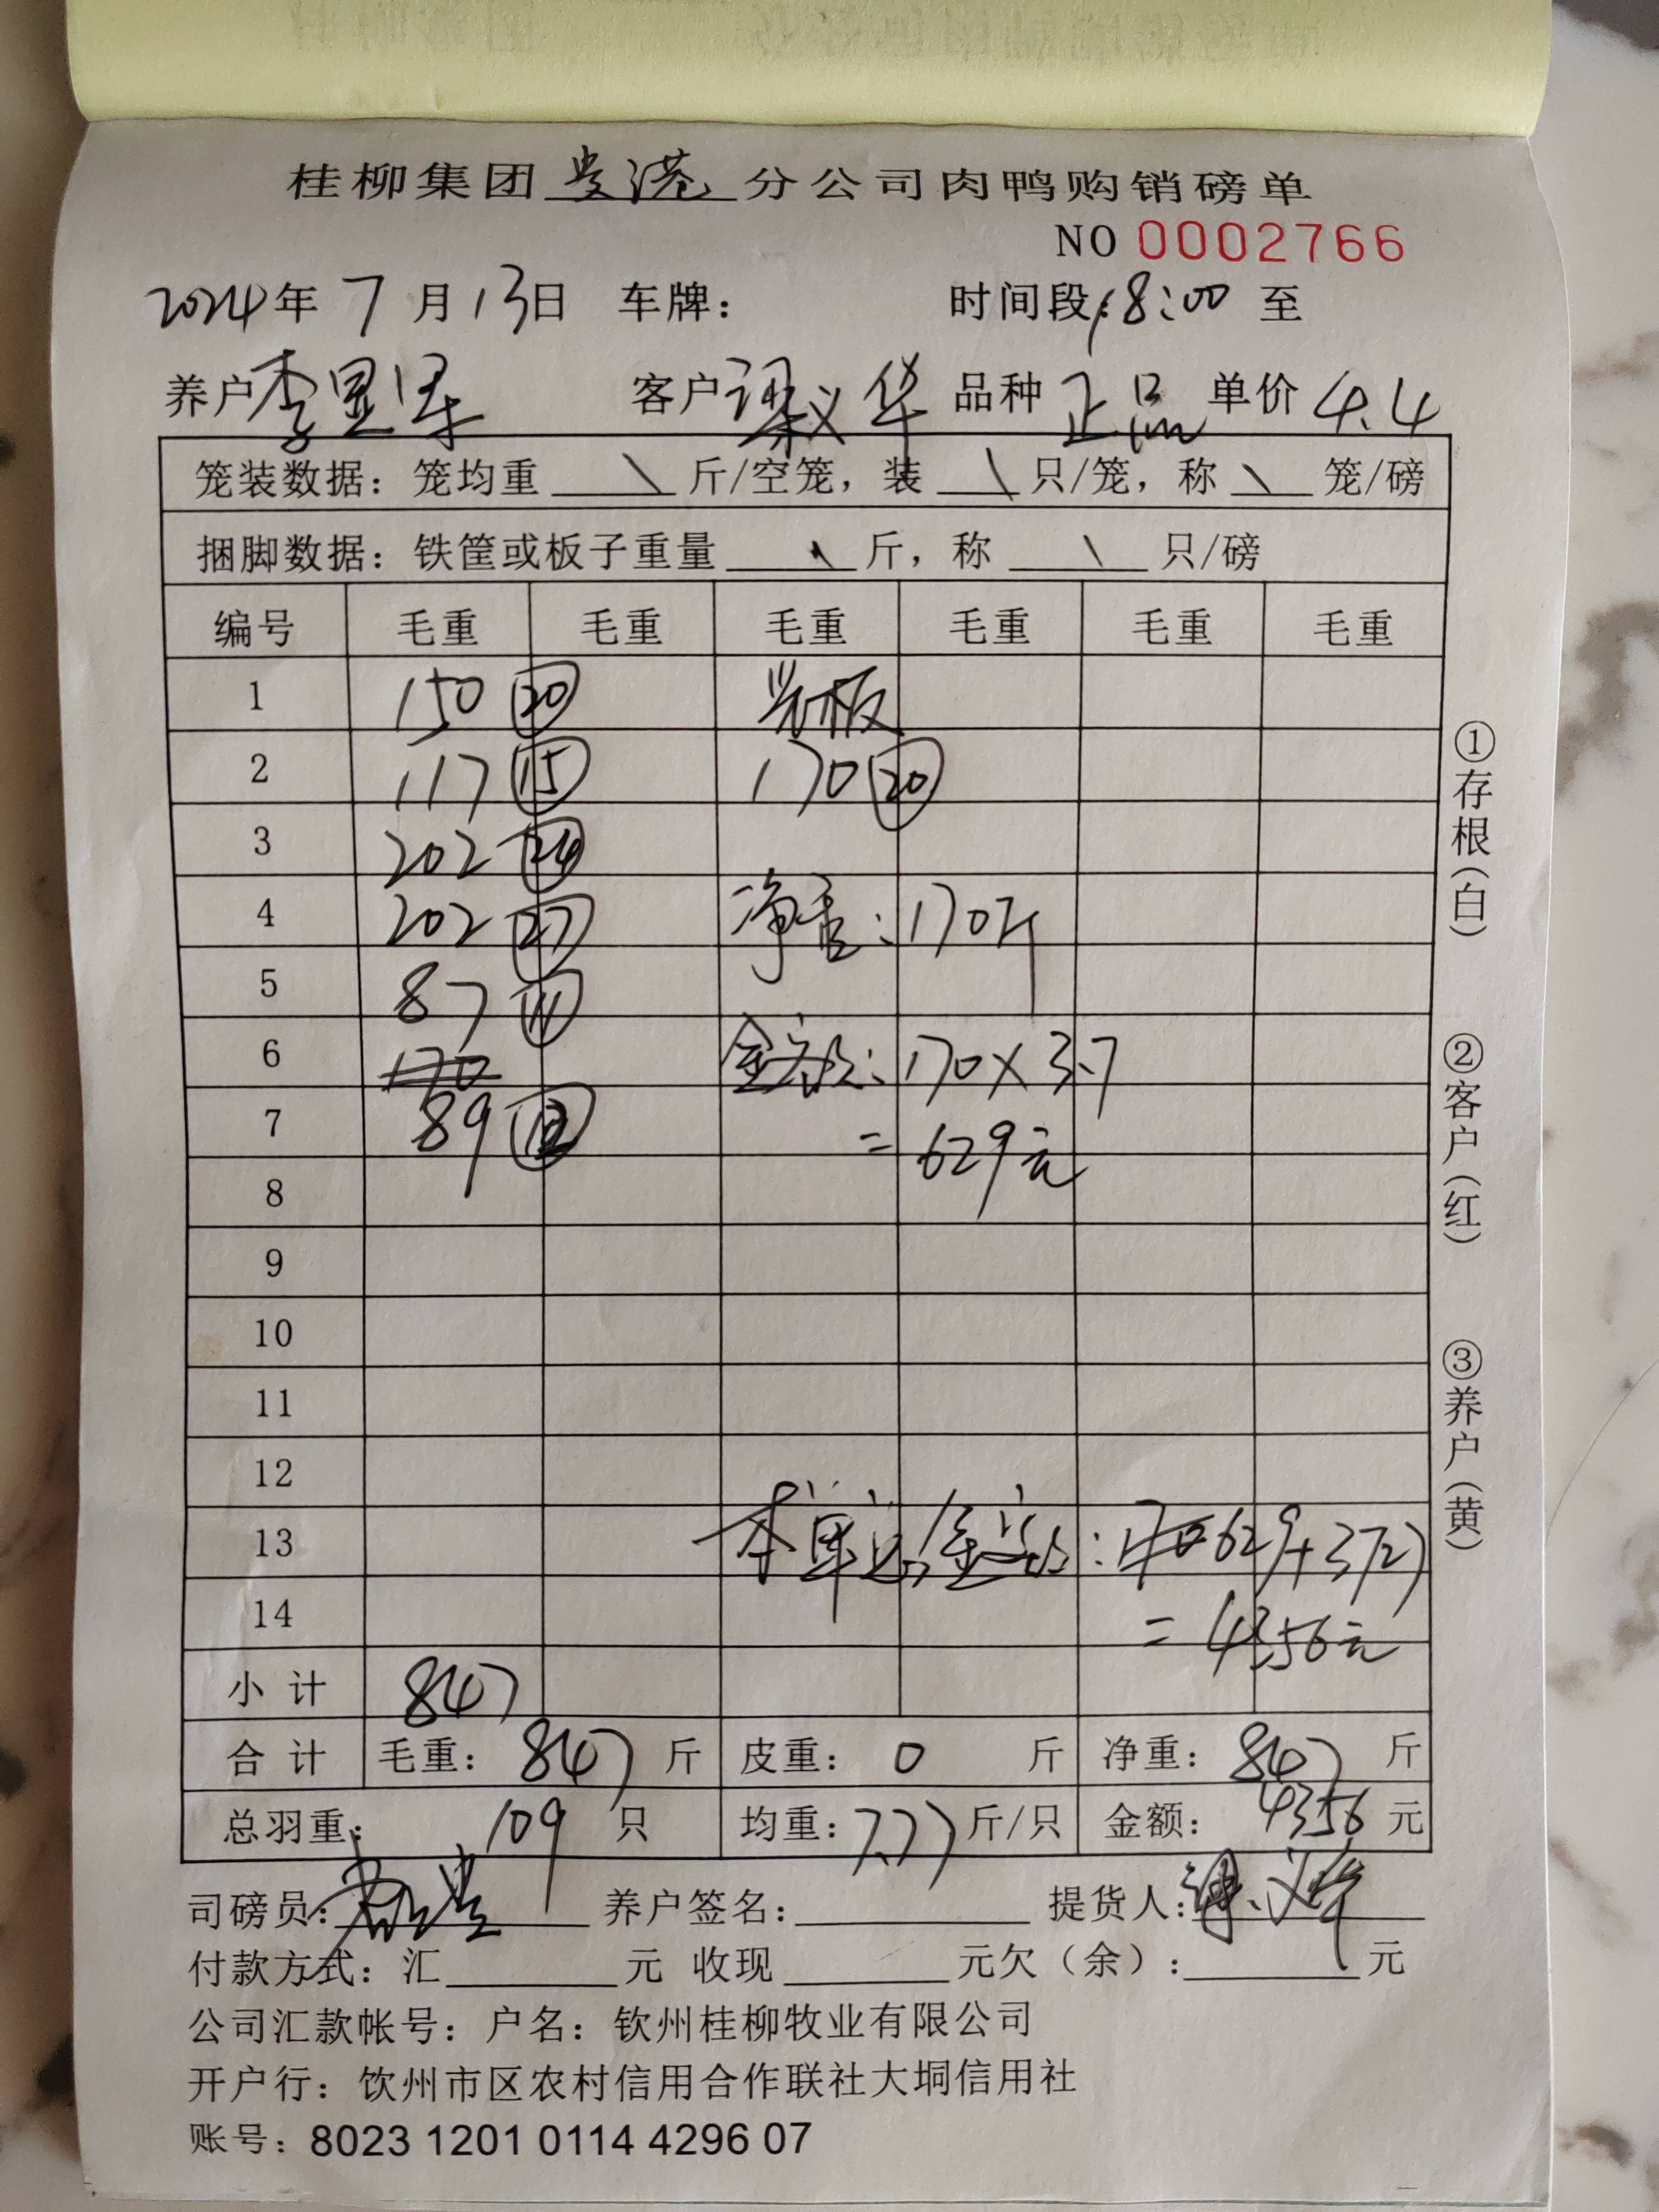 桂柳集团 贵港 分公司肉鸭购销磅单
NO 0002766
2024年 7 月 13日 车牌： 时间段：18:00 至
养户 李显 客户 梁义华 品种 正品 单价 4.4
笼装数据：笼均重 \ 斤/空笼，装 \ 只/笼，称 \ 笼/磅
捆脚数据：铁筐或板子重量 \ 斤，称 \ 只/磅
编号 毛重 毛重 毛重 毛重 毛重 毛重
1 150 20 光板
2 117 15 170 20
3 202
4 202 27 净重：170斤
5 87 11
6 170 金额：170×3.7
7 89 12 =629元
8
9
10
11
12
13 本单总金额：629+3727
14 =4356元
小 计 847
合 计 毛重： 847 斤 皮重： 0 斤 净重： 847 斤
总羽重： 109 只 均重：7.77斤/只 金额： 4356 元
司磅员： 养户签名： 提货人：梁义华
付款方式：汇 元 收现 元欠（余）： 元
公司汇款帐号：户名：钦州桂柳牧业有限公司
开户行：钦州市区农村信用合作联社大垌信用社
账号：8023 1201 0114 4296 07
①存根（白）
②客户（红）
③养户（黄）